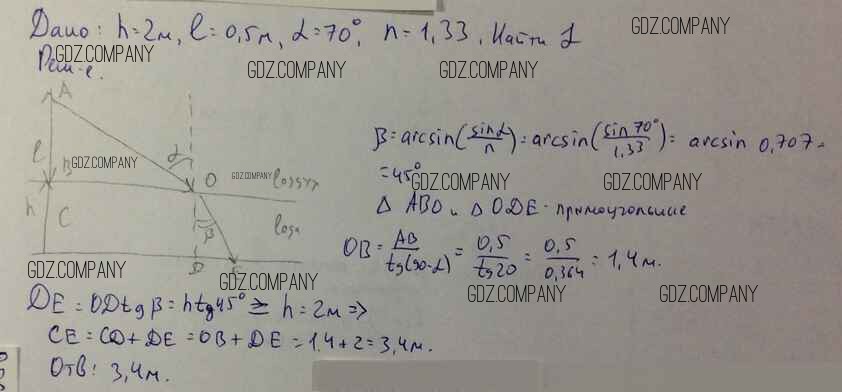 Дано: h=2м, l=0,5м, α=70°, n=1,33. Найти L
GDZ.COMPANY
GDZ.COMPANY
GDZ.COMPANY
GDZ.COMPANY
Реш-е.
A
α
l
B
O
воздух
GDZ.COMPANY
GDZ.COMPANY
h
C
β
вода
D
GDZ.COMPANY
GDZ.COMPANY
β = arcsin(sinα/n) = arcsin(sin 70°/1,33) = arcsin 0,707 =
= 45°
GDZ.COMPANY
GDZ.COMPANY
Δ ABO и Δ ODE - прямоугольные
OB = AB/tg(90-α) = 0,5/tg20 = 0,5/0,364 = 1,4 м.
GDZ.COMPANY
GDZ.COMPANY
DE = ODtgβ = htg45° = h = 2м =>
CE = CD + DE = OB + DE = 1,4 + 2 = 3,4 м.
Отв: 3,4 м.